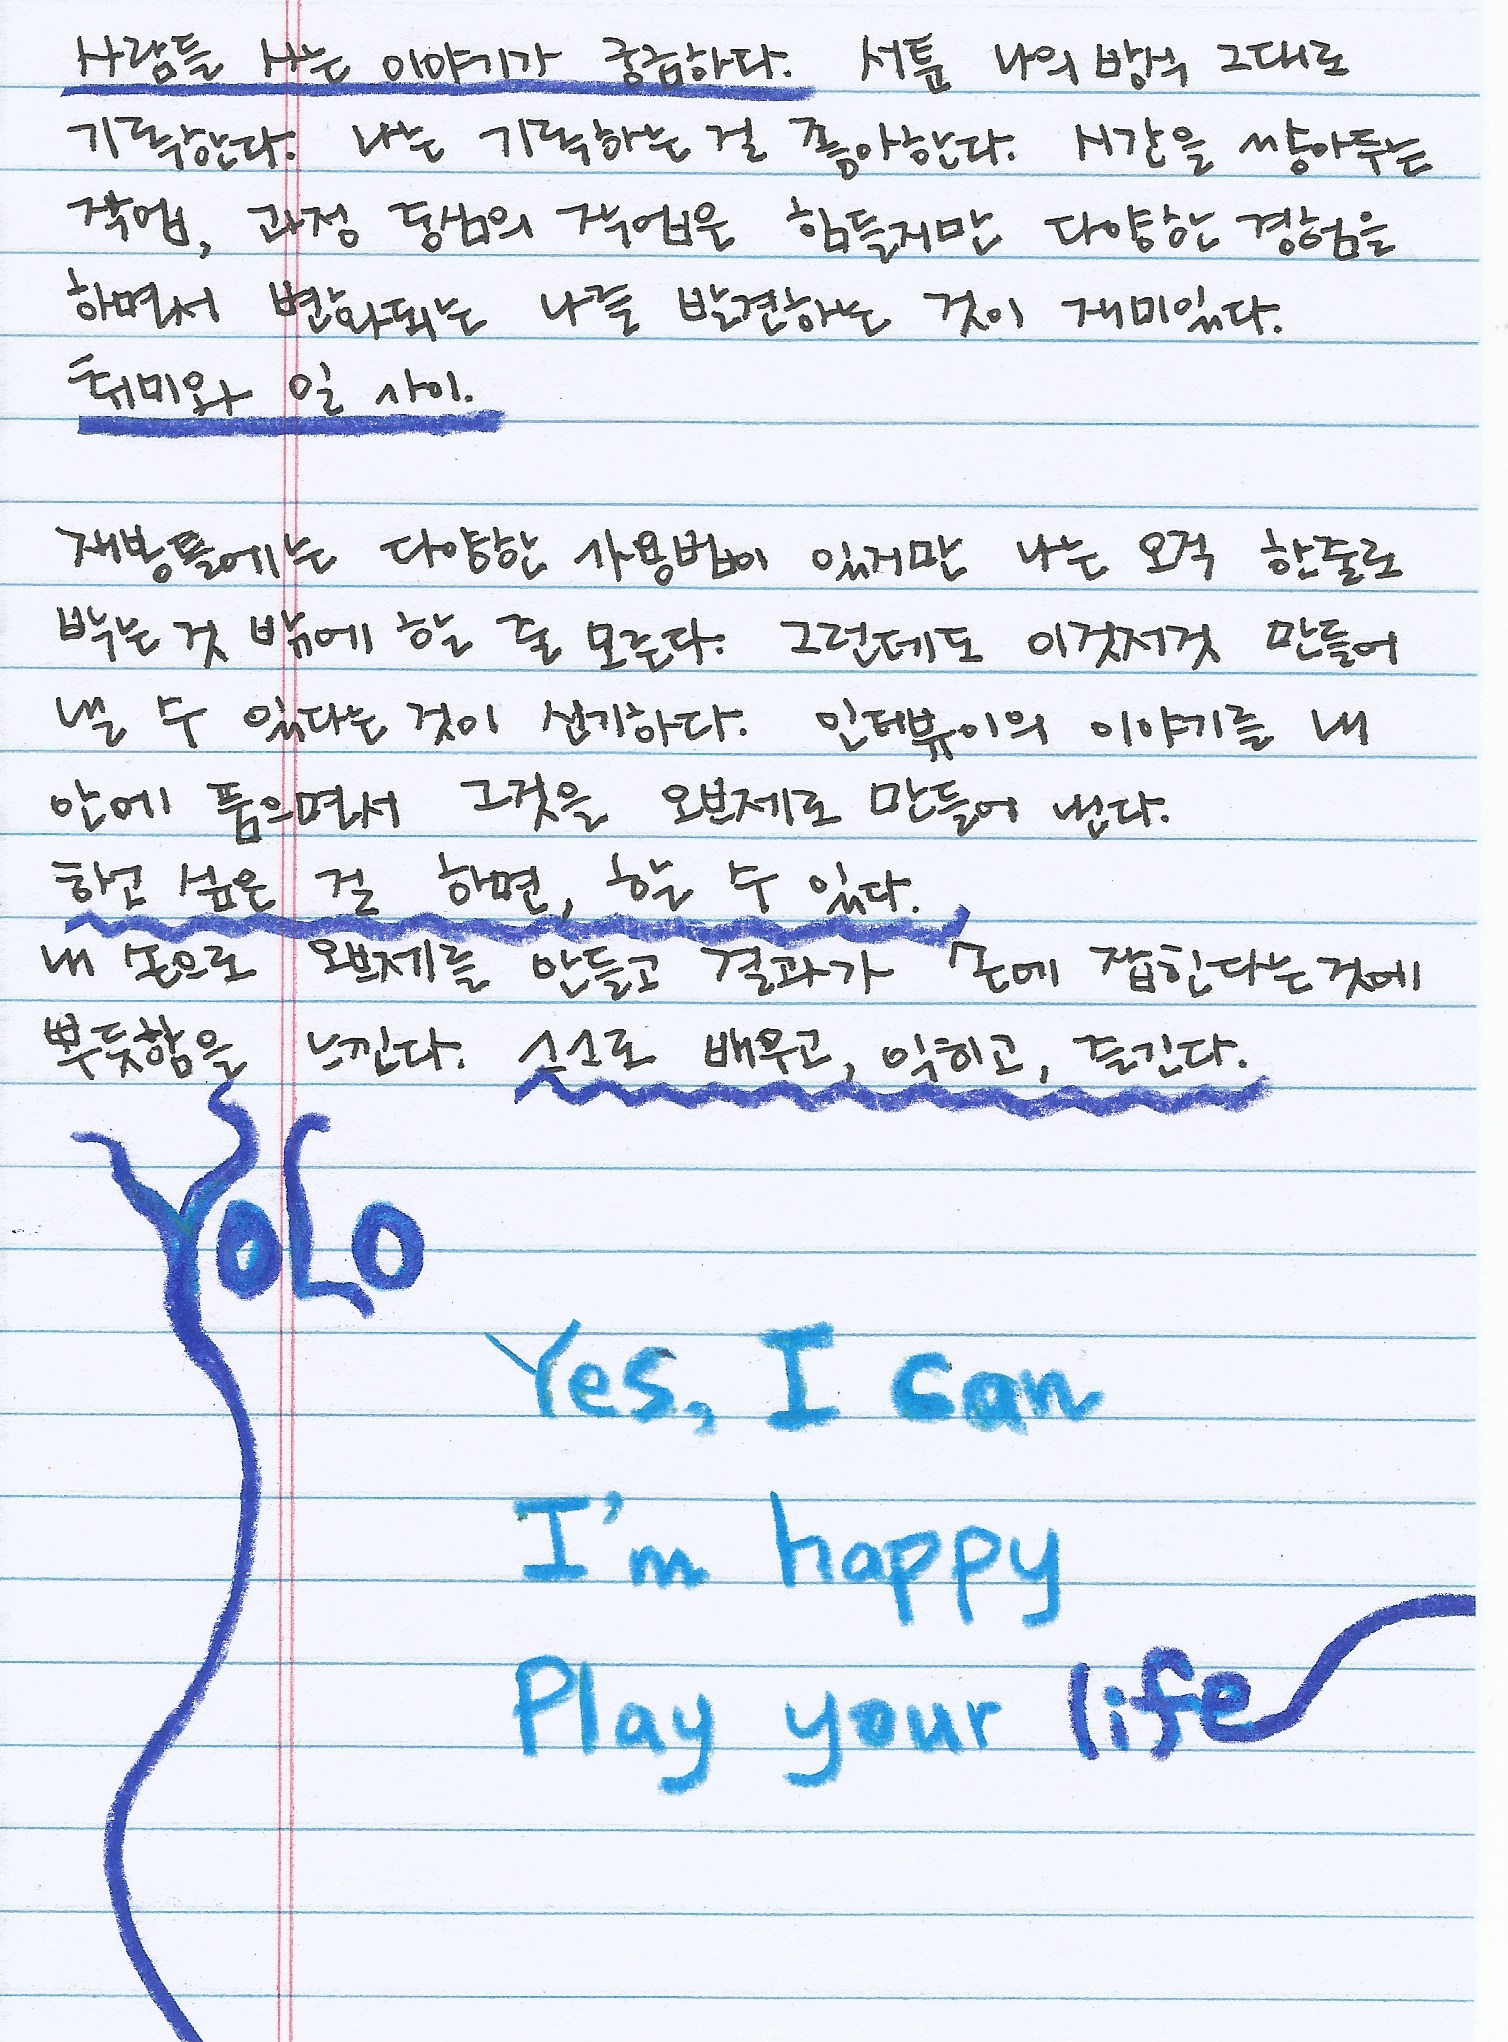 사람들 사는 이야기가 궁금하다. 서툰 나의 방식 그대로
기록한다. 나는 기록하는 걸 좋아한다. 시간을 쌓아두는
작업, 과정 중심의 작업은 힘들지만 다양한 경험을
하면서 변화되는 나를 발견하는 것이 재미있다.
취미와 일 사이.
재봉틀에는 다양한 사용법이 있지만 나는 오직 한줄로
박는 것 밖에 할 줄 모른다. 그런데도 이것저것 만들어
낼 수 있다는 것이 신기하다. 인터뷰이의 이야기를 내
안에 품으면서 그것을 오브제로 만들어 낸다.
하고 싶은 걸 하면, 할 수 있다.
내 손으로 오브제를 만들고 결과가 손에 잡힌다는것에
뿌듯함을 느낀다. 스스로 배우고, 익히고, 즐긴다.
YOLO
Yes, I can
I'm happy
Play your life